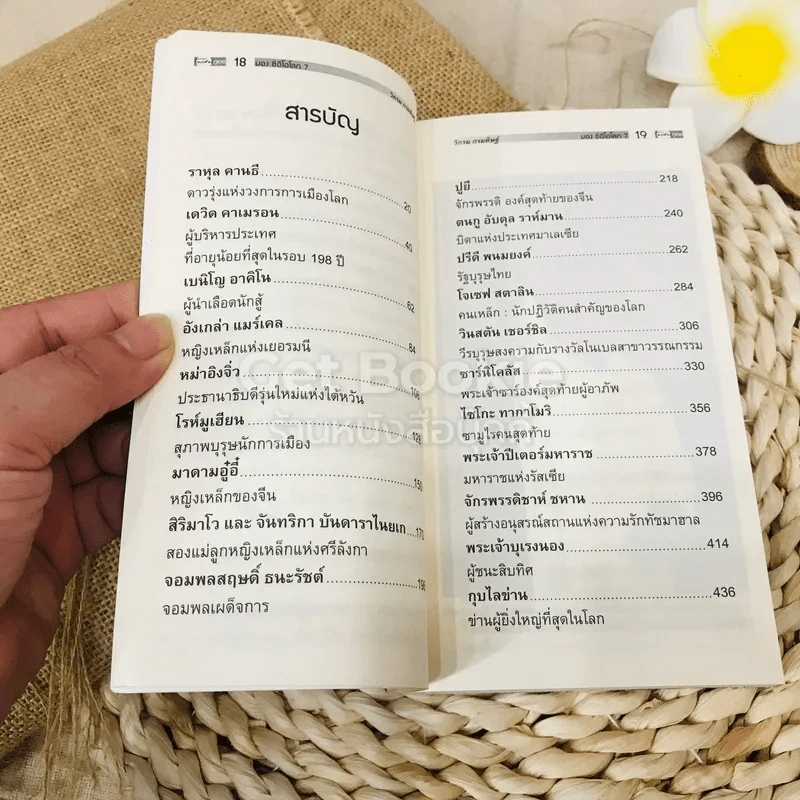 18 มอง ซีอีโอโลก 7
วิกรม
สารบัญ
ราหุล คานธี
ดาวรุ่งแห่งวงการการเมืองโลก 20
เดวิด คาเมรอน
ผู้บริหารประเทศ 40
ที่อายุน้อยที่สุดในรอบ 198 ปี
เบนิโญ อาคิโน
ผู้นำเลือดนักสู้ 62
อังเกล่า แมร์เคล
หญิงเหล็กแห่งเยอรมนี 84
หม่าอิงจิ่ว
ประธานาธิบดีรุ่นใหม่แห่งไต้หวัน 106
โรห์มูเฮียน
สุภาพบุรุษนักการเมือง 128
มาดามอู๋อี๋
หญิงเหล็กของจีน 150
สิริมาโว และ จันทริกา บันดาราไนยเก....170
สองแม่ลูกหญิงเหล็กแห่งศรีลังกา
จอมพลสฤษดิ์ ธนะรัชต์ 196
จอมพลเผด็จการ
วิกรม กรมดิษฐ์ มอง ซีอีโอโลก 7 19
ปูยี 218
จักรพรรดิ องค์สุดท้ายของจีน
ตนกู อับดุล ราห์มาน 240
บิดาแห่งประเทศมาเลเซีย
ปรีดี พนมยงค์ 262
รัฐบุรุษไทย
โจเซฟ สตาลิน 284
คนเหล็ก : นักปฏิวัติคนสำคัญของโลก
วินสตัน เชอร์ชิล 306
วีรบุรุษสงครามกับรางวัลโนเบลสาขาวรรณกรรม
ซาร์นิโคลัส 330
พระเจ้าซาร์องค์สุดท้ายผู้อาภัพ
ไซโกะ ทากาโมริ 356
ซามูไรคนสุดท้าย
พระเจ้าปีเตอร์มหาราช 378
มหาราชแห่งรัสเซีย
จักรพรรดิชาห์ ชหาน 396
ผู้สร้างอนุสรณ์สถานแห่งความรักทัชมาฮาล
พระเจ้าบุเรงนอง 414
ผู้ชนะสิบทิศ
กุบไลข่าน 436
ข่านผู้ยิ่งใหญ่ที่สุดในโลก
Get Bookie
ร้านหนังสือมุดดู